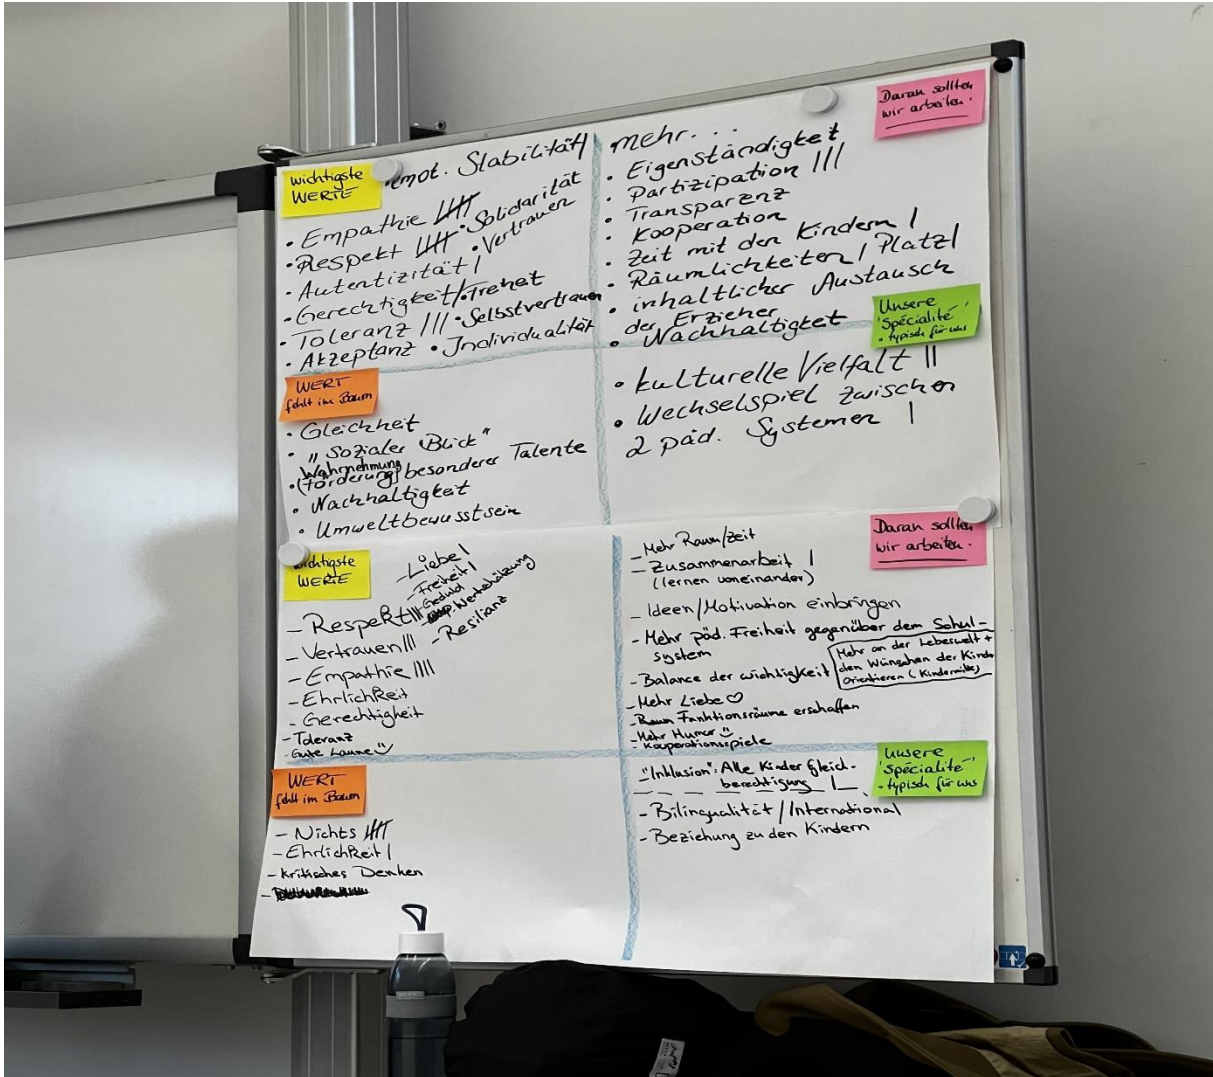 wichtigste
WERTE
• emot. Stabilität |
• Empathie ||||
• Solidarität
• Respekt ||||
• Vertrauen
• Autentizität |
• Gerechtigkeit |
• Freiheit
• Toleranz |||
• Selbstvertrauen
• Akzeptanz
• Individualität
Daran sollten
wir arbeiten.
mehr...
• Eigenständigkeit
• Partizipation |||
• Transparenz
• Kooperation
• Zeit mit den Kindern |
• Räumlichkeiten / Platz |
• inhaltlicher Austausch
der Erzieher
• Nachhaltigkeit
WERT
fehlt im Baum
• Gleichheit
• "Sozialer Blick"
Wahrnehmung
• (Förderung) besonderer Talente
• Nachhaltigkeit
• Umweltbewusstsein
Unsere
'spécialité'
- typisch für uns
• kulturelle Vielfalt ||
• Wechselspiel zwischen
2 päd. Systemen |
wichtigste
WERTE
- Liebe |
- Freiheit |
- Geduld
- Wertschätzung
- Resilianz
- Respekt |||
- Vertrauen |||
- Empathie ||||
- Ehrlichkeit
- Gerechtigkeit
- Toleranz
- Gute Laune
Daran sollten
wir arbeiten.
- Mehr Raum/Zeit
- Zusammenarbeit |
(lernen voneinander)
- Ideen/Motivation einbringen
- Mehr päd. Freiheit gegenüber dem Schul-
system
Mehr an der Lebeswelt +
den Wünschen der Kinder
orientieren (Kindermitte)
- Balance der wichtigkeit
- Mehr Liebe ♡
- Funktionsräume erschaffen
- Mehr Humor
- Kooperationsspiele
WERT
fehlt im Baum
- Nichts ||||
- Ehrlichkeit |
- Kritisches Denken
Unsere
'spécialité'
- typisch für uns
- "Inklusion": Alle Kinder Gleich-
berechtigung |
- Bilingualität / International
- Beziehung zu den Kindern